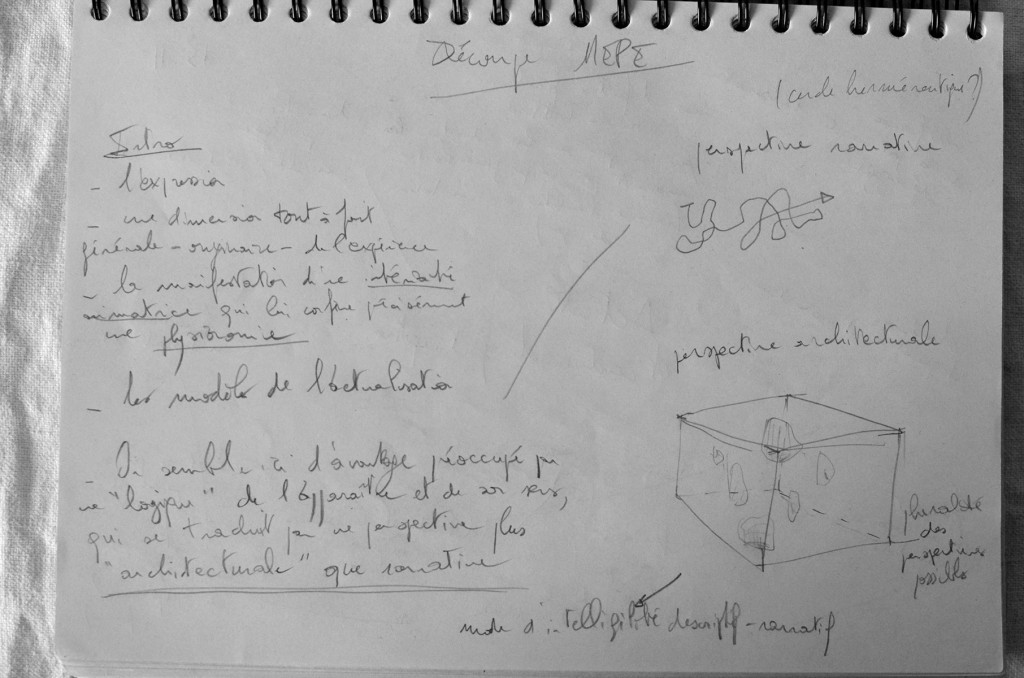 Découpe MEPE
(cercle herméneutique?)
Intro
- l'expression
- une dimension tout à fait
générale - originaire - de l'expérience
- la manifestation d'une intériorité
animatrice qui lui confère précisément
une physionomie
- les modèles de l'actualisation
- On semble ici d'avantage préoccupé par
une "logique" de l'apparaître et de son sens,
qui se traduit par une perspective plus
"architecturale" que narrative
perspective narrative
perspective architecturale
pluralité
des
perspectives
possibles
mode d'intelligibilité descriptif-narratif